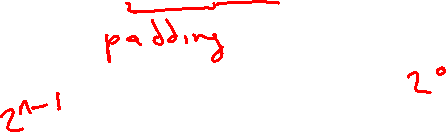 padding
2^{n-1} 2^0